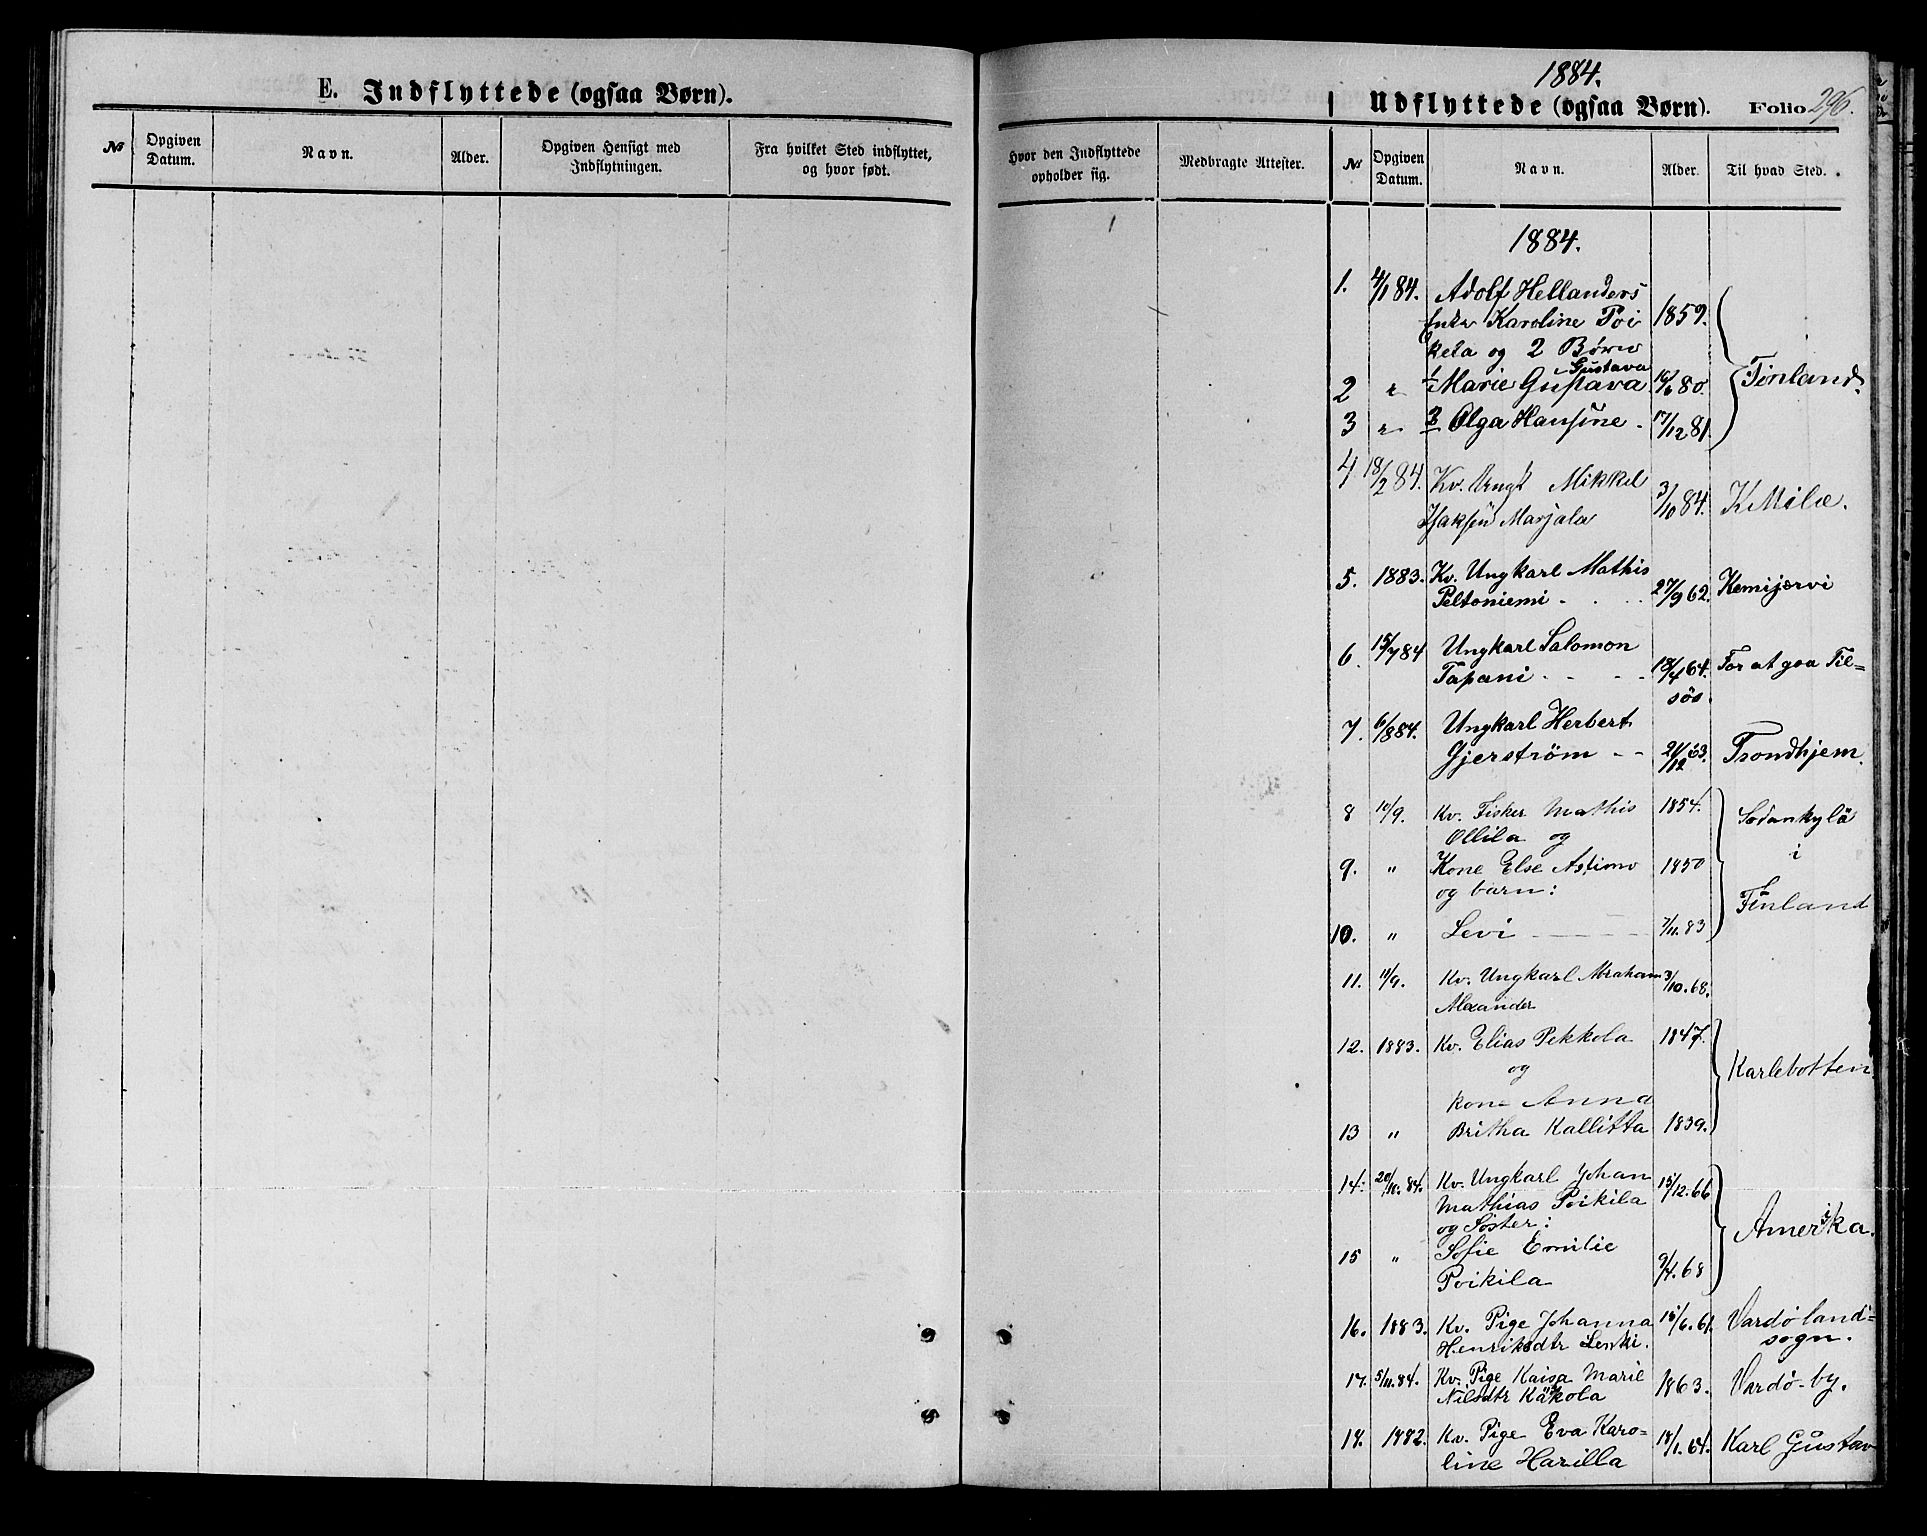 E. Indflyttede (ogsaa Børn).
№ Opgiven Datum. Navn. Alder. Opgiven Hensigt med Indflytningen. Fra hvilket Sted indflyttet, og hvor født.
1884.
Udflyttede (ogsaa Børn). Folio 296.
Hvor den Indflyttede opholder sig. Medbragte Attester. № Opgiven Datum. Navn. Alder. Til hvad Sted.
1884.
1. 4/1 84. Adolf Hellanders
Enke Karoline Poi 1859.
kela og 2 Børn
Gustava
2 " 1 Marie Gustava 16/6 80. Finland.
3 " 2 Olga Hansine - 17/12 81.
4 18/2 84. Kv. Ungk Mikkel
Isaksen Marjala 3/10 84. K Mila.
5. 1883. Kv. Ungkarl Mathis
Peltoniemi - 27/9 62. Kemijærvi
6. 15/7 84 Ungkarl Salomon
Tapani - 18/4 64. For at gaa Til=
søs.
7. 6/8 84. Ungkarl Herbert
Gjerström - - 21/12 63. Trondhjem.
8 10/9. Kv. Fisker Mathis 1854. Sodankylä
Ollila og i
9. " Kone Else Astimo 1850
og barn: Finland
10. " Levi 7/11.83
11. 11/9. Kv. Ungkarl Abraham 3/10.68.
Alexander
12. 1883. Kv. Elias Pekkola 1847.
og Karlebotten
kone Anna
13 " Britha Kallitta 1839.
14. 20/10. 84. Kv. Ungkarl Johan 15/12.66
Mathias Poikila
og Søster: Amerika.
15 " Sofie Emilie
Poikila 9/4.68
16. 1883. Kv. Pige Johanna 15/6.61. Vardø land=
Henriksdtr Lenki. sogn.
17. 5/11.84. Kv. Pige Kaisa Marie
Nilsdtr Käkola 1863. Vardö-by.
18. 1882. Kv. Pige Eva Karo=
line Harilla 18/1.64. Karl Gustav